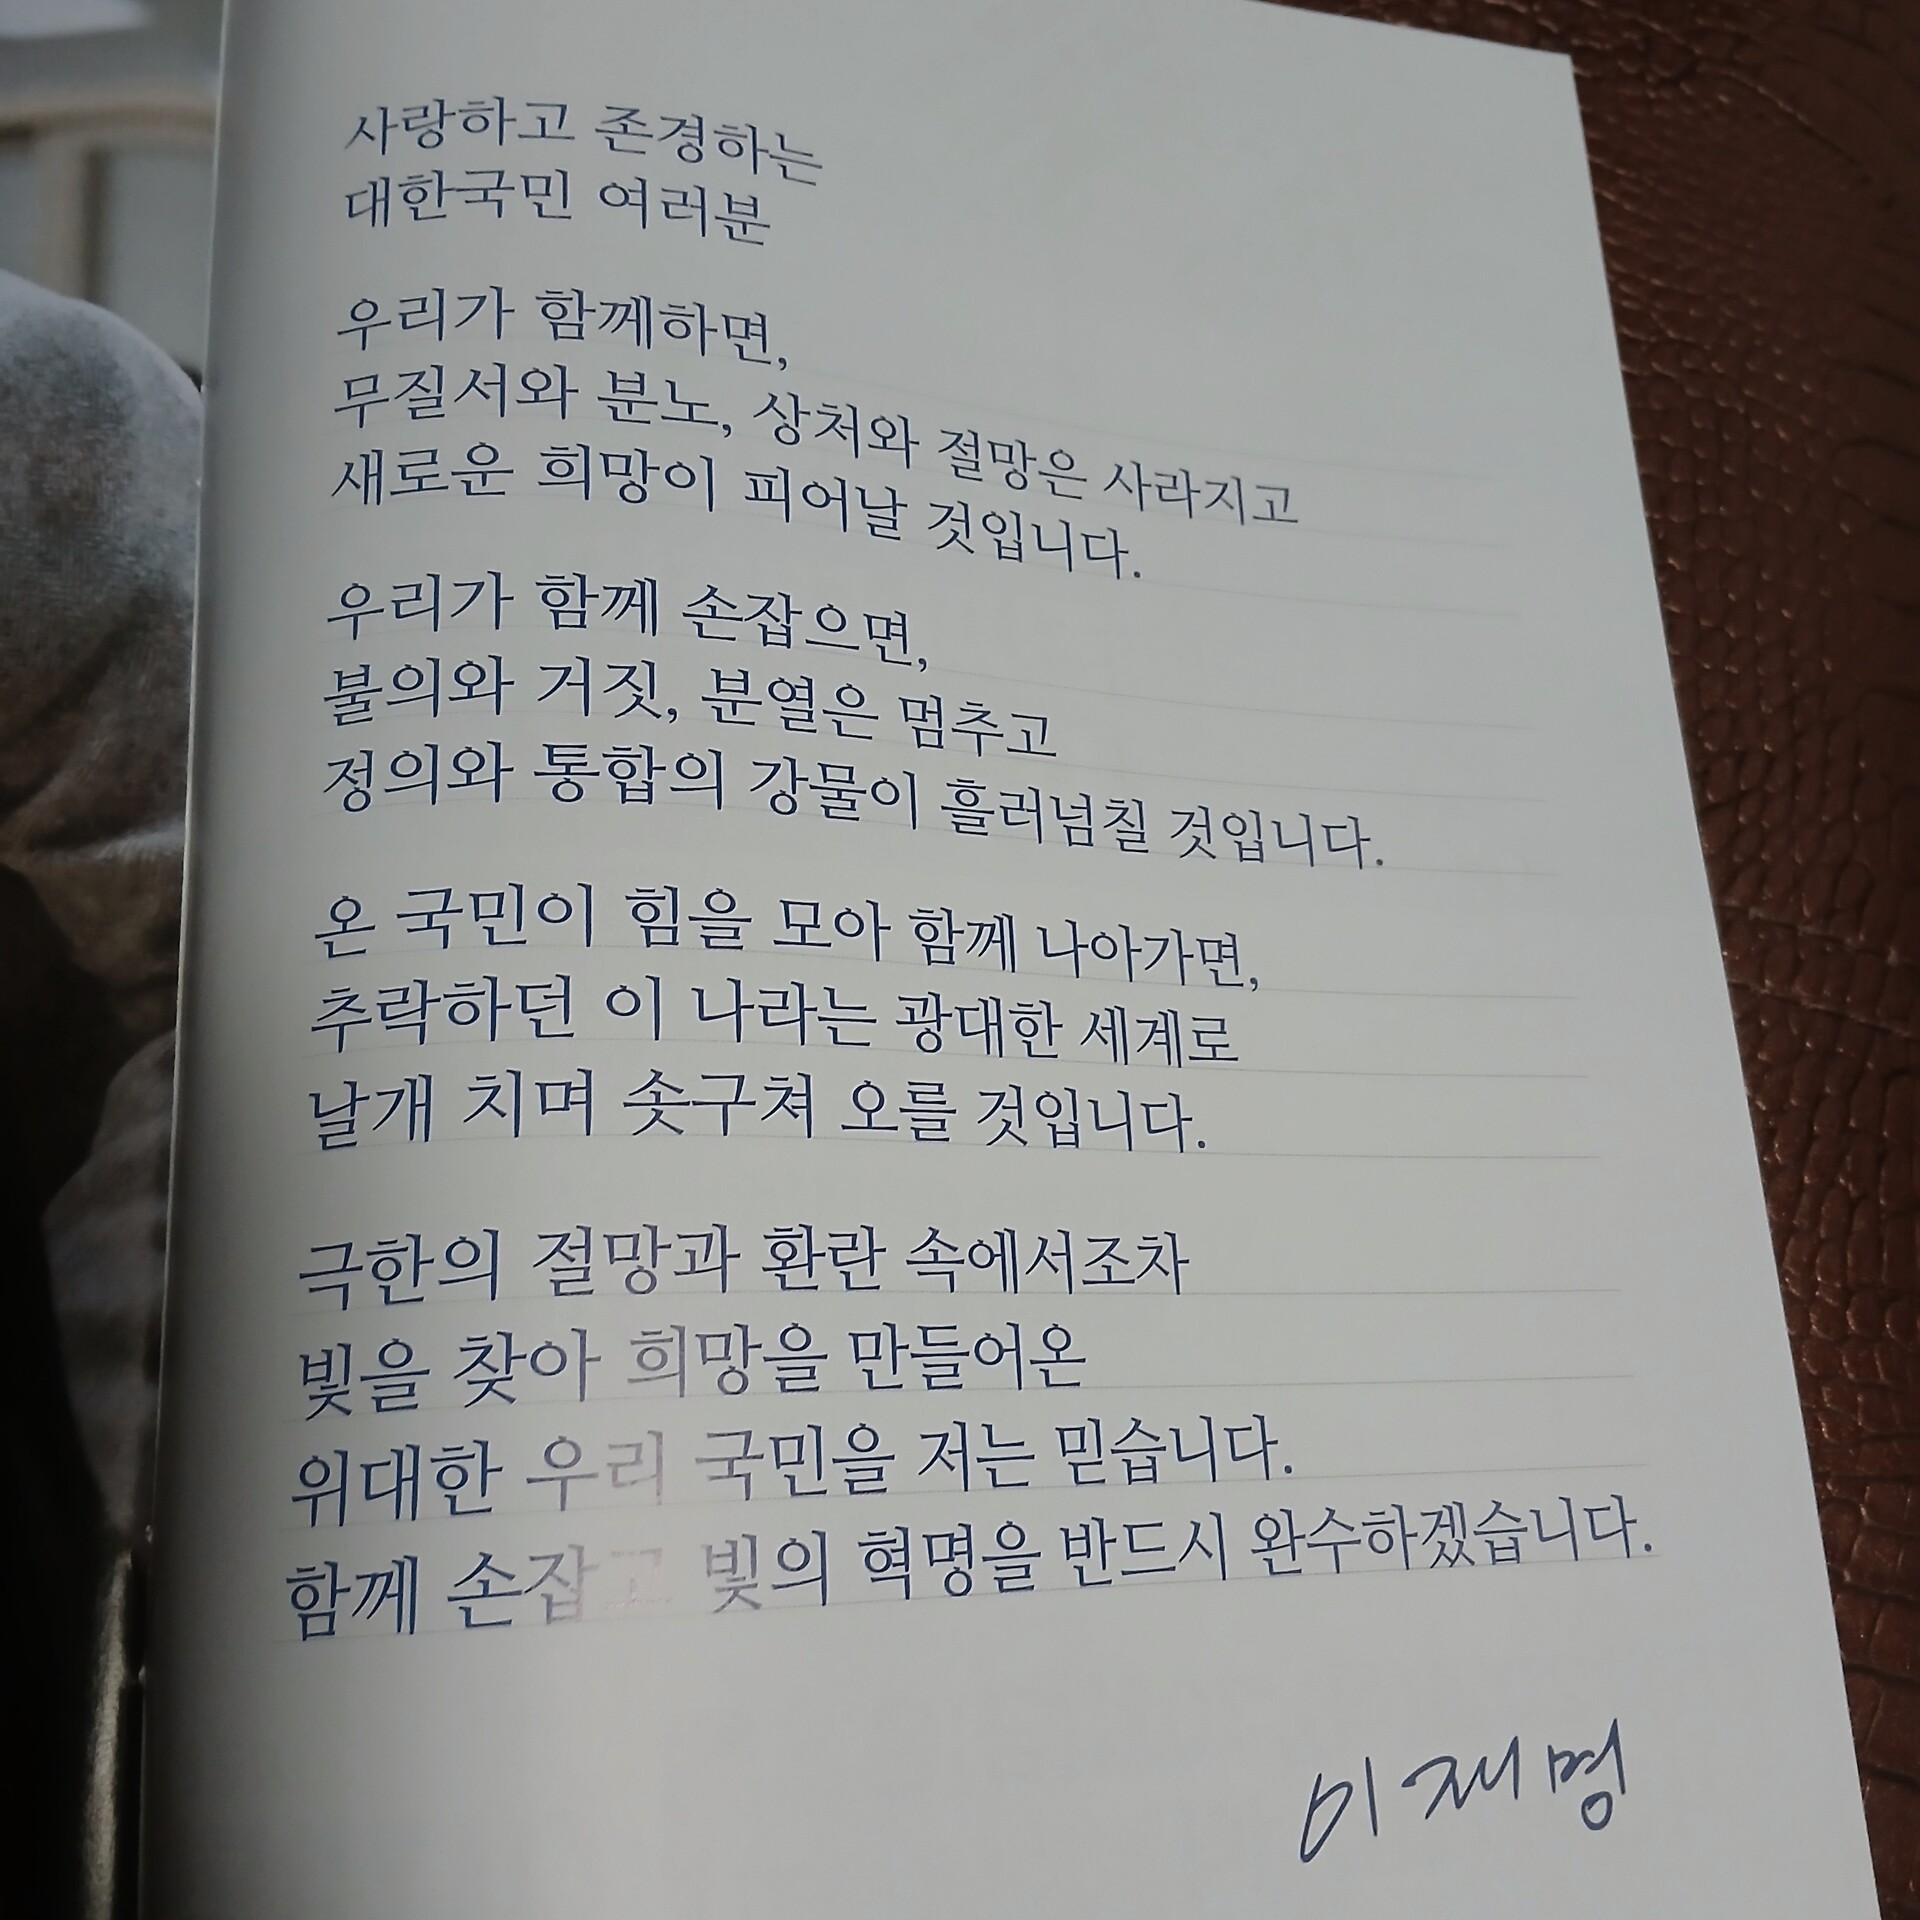 사랑하고 존경하는
대한국민 여러분
우리가 함께하면,
무질서와 분노, 상처와 절망은 사라지고
새로운 희망이 피어날 것입니다.
우리가 함께 손잡으면,
불의와 거짓, 분열은 멈추고
정의와 통합의 강물이 흘러넘칠 것입니다.
온 국민이 힘을 모아 함께 나아가면,
추락하던 이 나라는 광대한 세계로
날개 치며 솟구쳐 오를 것입니다.
극한의 절망과 환란 속에서조차
빛을 찾아 희망을 만들어온
위대한 우리 국민을 저는 믿습니다.
함께 손잡고 빛의 혁명을 반드시 완수하겠습니다.
이재명